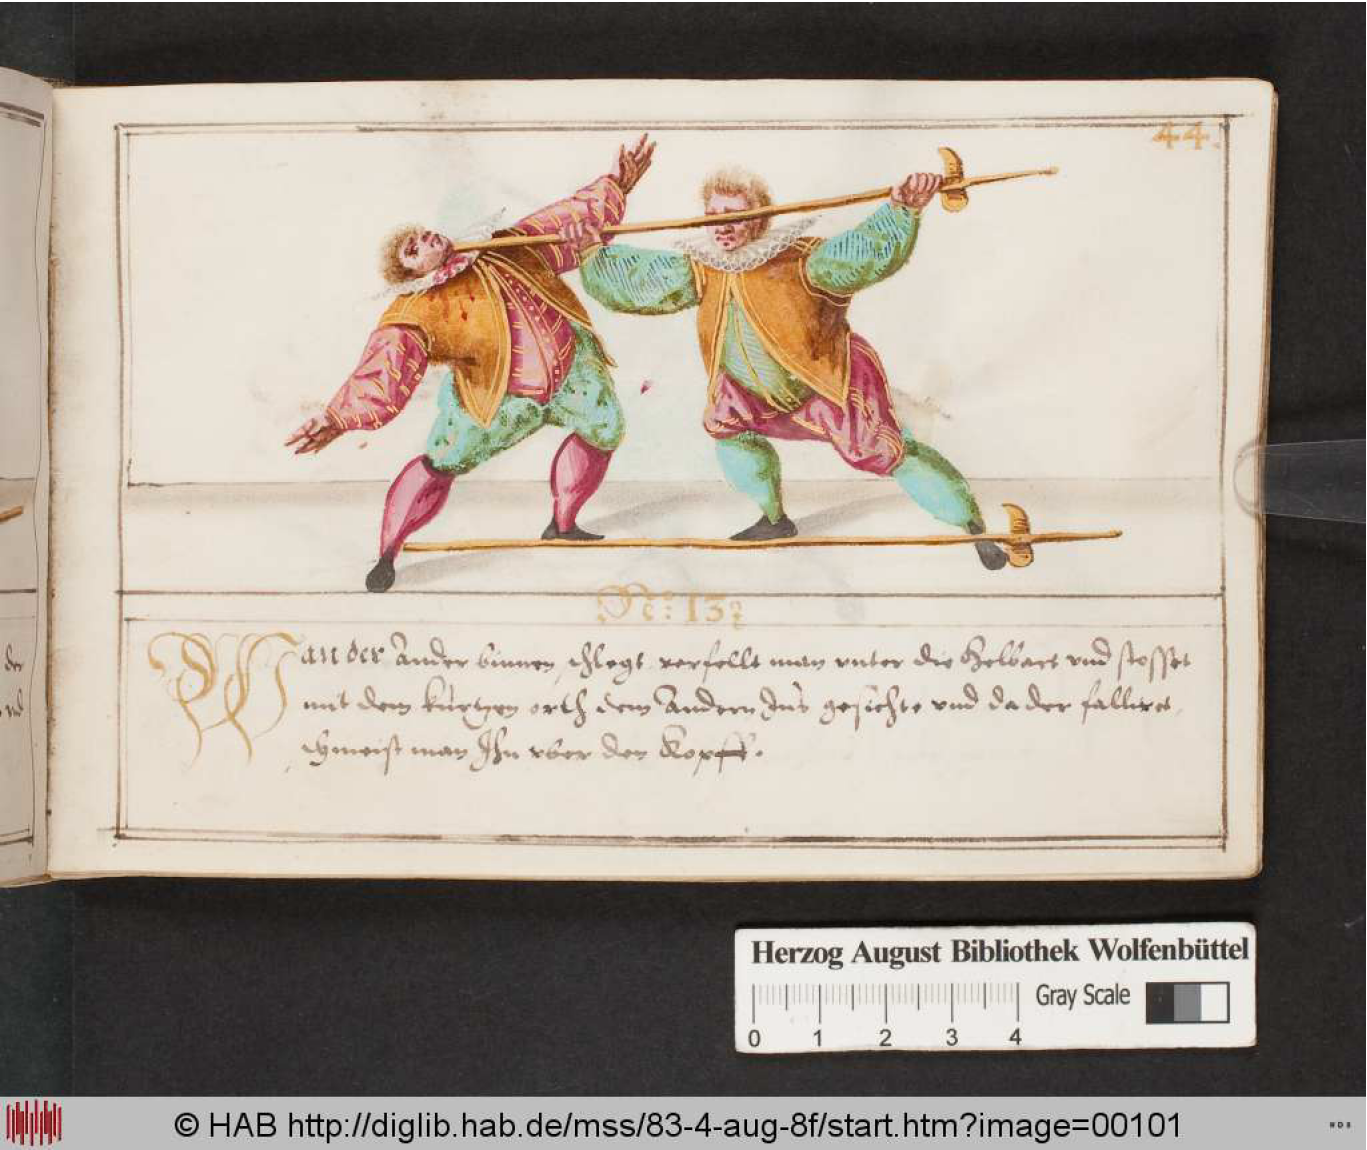 44.
No: 13
Wan der Ander binnen schlegt verfellt man vnter die Helbart vnd stosset
mit dem kurtzen orth dem Andern Ins gesichte vnd da der falliret,
schmeist man Ihn vber den Kopff.
der
vnd
Herzog August Bibliothek Wolfenbüttel
Gray Scale
0 1 2 3 4
© HAB http://diglib.hab.de/mss/83-4-aug-8f/start.htm?image=00101